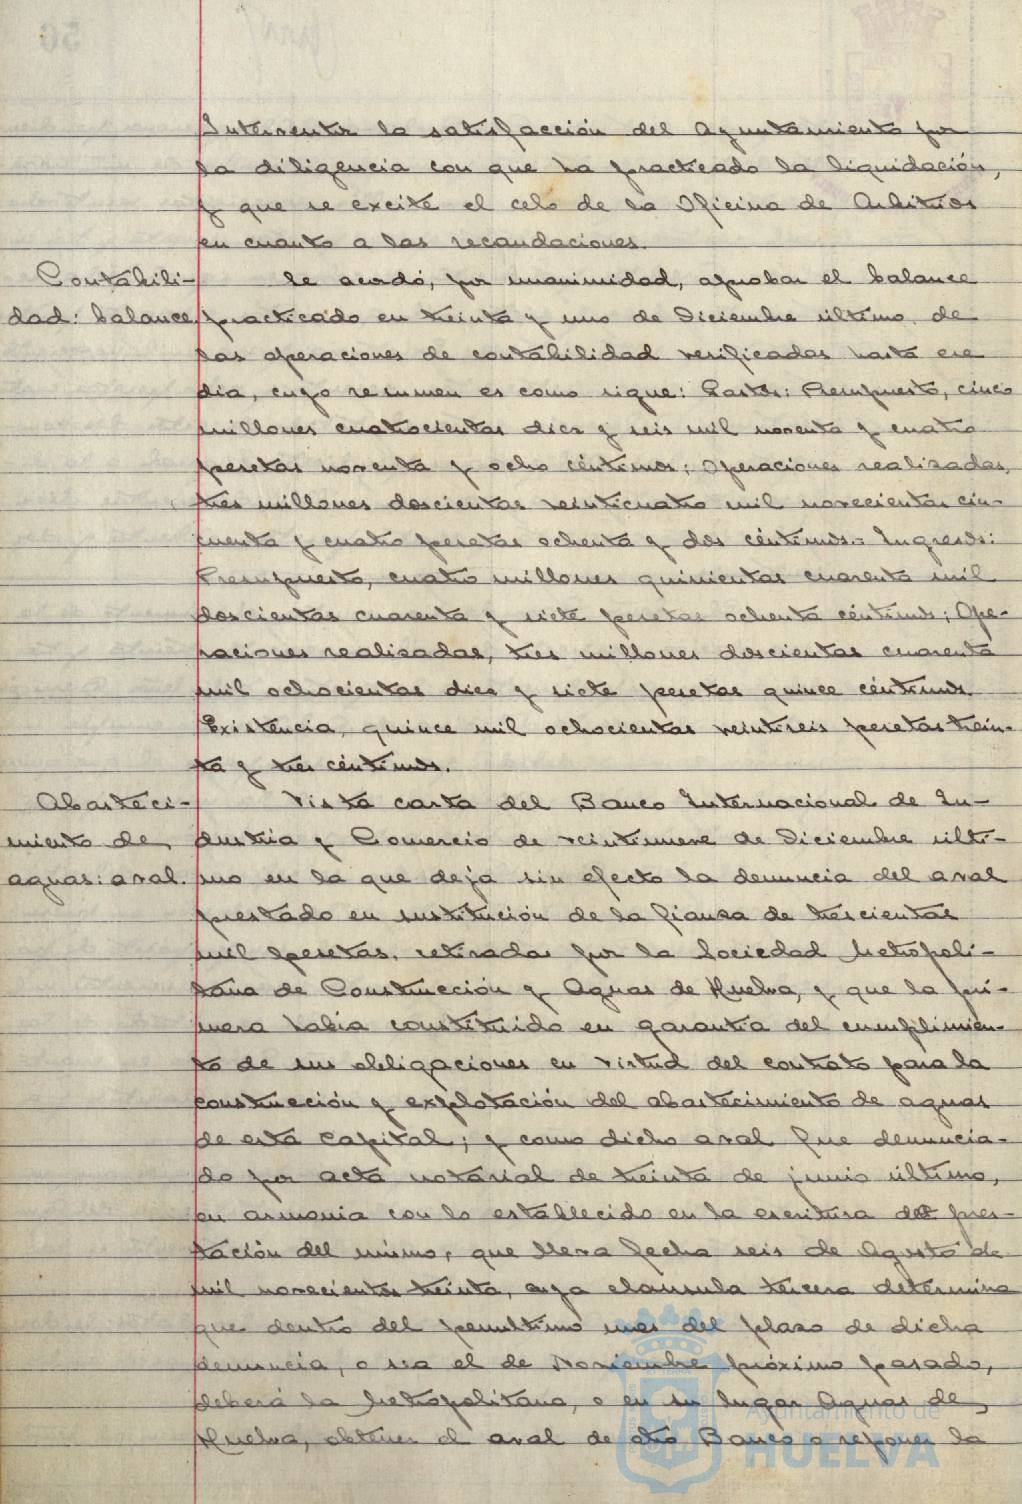 Interventor la satisfacción del Ayuntamiento por
la diligencia con que ha practicado la liquidación,
y que se excite el celo de la Oficina de Arbitrios
en cuanto a las recaudaciones.
Contabili-
dad: balance
Se acordó, por unanimidad, aprobar el balance
practicado en treinta y uno de Diciembre último, de
las operaciones de contabilidad verificadas hasta ese
día, cuyo resumen es como sigue: Gastos: Presupuesto, cinco
millones cuatrocientas diez y seis mil noventa y cuatro
pesetas noventa y ocho céntimos; Operaciones realizadas,
tres millones doscientas veinticuatro mil novecientas cin-
cuenta y cuatro pesetas ochenta y dos céntimos.= Ingresos:
Presupuesto, cuatro millones quinientas cuarenta mil
doscientas cuarenta y siete pesetas ochenta céntimos; Ope-
raciones realizadas, tres millones doscientas cuarenta
mil ochocientas diez y siete pesetas quince céntimos
Existencia, quince mil ochocientas veintiseis pesetas trein-
ta y tres céntimos.
Abasteci-
miento de
aguas: aval.
Vista carta del Banco Internacional de In-
dustria y Comercio de veintinueve de Diciembre últi-
mo en la que deja sin efecto la denuncia del aval
prestado en sustitución de la fianza de trescientas
mil pesetas, retiradas por la Sociedad Metropoli-
tana de Construcción y Aguas de Huelva, y que la pri-
mera había constituido en garantía del cumplimien-
to de sus obligaciones en virtud del contrato para la
construcción y explotación del abastecimiento de aguas
de esta capital; y como dicho aval fue denuncia-
do por acta notarial de treinta de junio último,
en armonía con lo establecido en la escritura de pres-
tación del mismo, que lleva fecha seis de Agosto de
mil novecientos treinta, cuya cláusula tercera determina
que dentro del penúltimo mes del plazo de dicha
denuncia, o sea el de Noviembre próximo pasado,
deberá la Metropolitana, o en su lugar Aguas de
Huelva, obtener el aval de otro Banco o reponer la
Ayuntamiento de
HUELVA